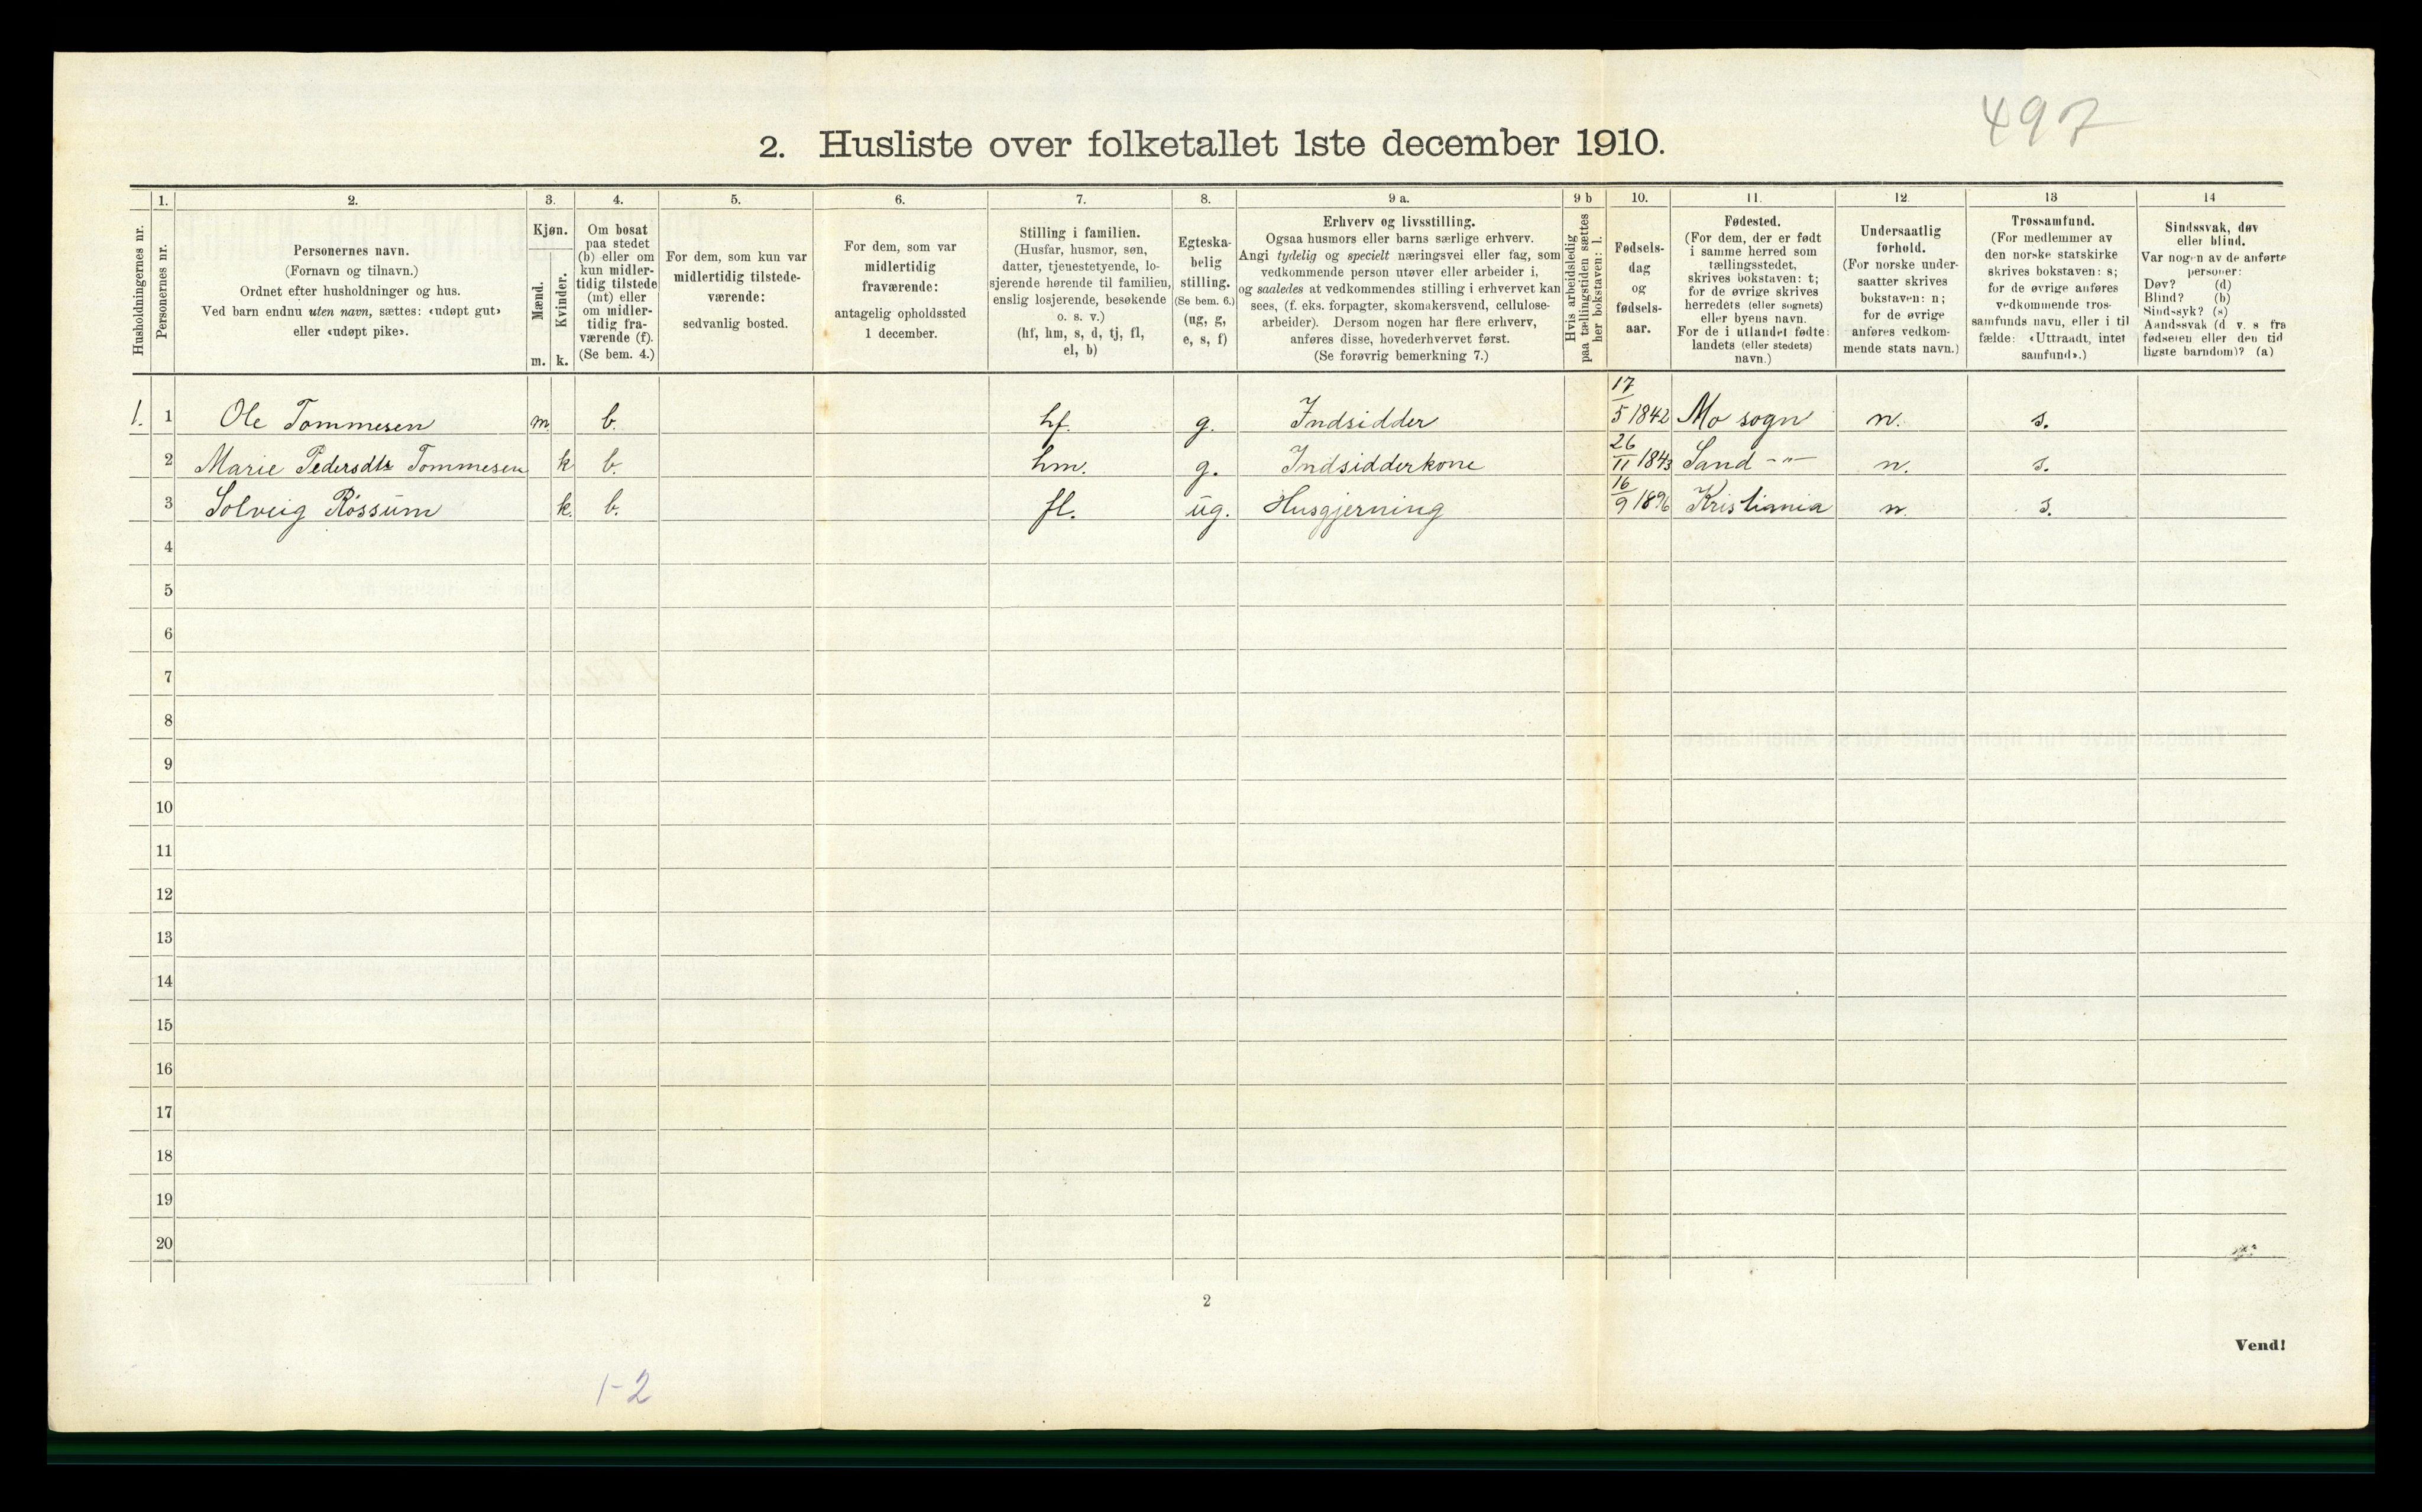 497
2. Husliste over folketallet 1ste december 1910.
Husholdningernes nr.
1.
Personernes nr.
2.
Personernes navn.
(Fornavn og tilnavn.)
Ordnet efter husholdninger og hus.
Ved barn endnu uten navn, sættes: «udøpt gut»
eller «udøpt pike».
3.
Kjøn.
Mænd.
m.
Kvinder.
k.
4.
Om bosat
paa stedet
(b) eller om
kun midler-
tidig tilstede
(mt) eller
om midler-
tidig fra-
værende (f).
(Se bem. 4.)
5.
For dem, som kun var
midlertidig tilstede-
værende:
sedvanlig bosted.
6.
For dem, som var
midlertidig
fraværende:
antagelig opholdssted
1 december.
7.
Stilling i familien.
(Husfar, husmor, søn,
datter, tjenestetyende, lo-
sjerende hørende til familien,
enslig losjerende, besøkende
o. s. v.)
(hf, hm, s, d, tj, fl,
el, b)
8.
Egteska-
belig
stilling.
(Se bem. 6.)
(ug, g,
e, s, f)
9 a.
Erhverv og livsstilling.
Ogsaa husmors eller barns særlige erhverv.
Angi tydelig og specielt næringsvei eller fag, som
vedkommende person utøver eller arbeider i,
og saaledes at vedkommendes stilling i erhvervet kan
sees, (f. eks. forpagter, skomakersvend, cellulose-
arbeider). Dersom nogen har flere erhverv,
anføres disse, hovederhvervet først.
(Se forøvrig bemerkning 7.)
9 b
Hvis arbeidsledig
paa tællingstiden sættes
her bokstaven: l.
10.
Fødsels-
dag
og
fødsels-
aar.
11.
Fødested.
(For dem, der er født
i samme herred som
tællingsstedet,
skrives bokstaven: t;
for de øvrige skrives
herredets (eller sognets)
eller byens navn.
For de i utlandet fødte:
landets (eller stedets)
navn.)
12.
Undersaatlig
forhold.
(For norske under-
saatter skrives
bokstaven: n;
for de øvrige
anføres vedkom-
mende stats navn.)
13
Trossamfund.
(For medlemmer av
den norske statskirke
skrives bokstaven: s;
for de øvrige anføres
vedkommende tros-
samfunds navn, eller i til
fælde: «Uttraadt, intet
samfund».)
14
Sindssvak, døv
eller blind.
Var nogen av de anførte
personer:
Døv? (d)
Blind? (b)
Sindssyk? (s)
Aandssvak (d v. s fra
fødselen eller den tid
ligste barndom)? (a)
1. 1 Ole Tommesen m. b. hf. g. Indsidder 17/5 1842 Mo sogn n. s.
2 Marie Pedersdtr Tommesen k b. hm. g. Indsidderkone 26/11 1843 Sand -"- n. s.
3 Solveig Røssum k. b. fl. ug. Husgjerning 16/9 1896 Kristiania n. s.
4
5
6
7
8
9
10
11
12
13
14
15
16
17
18
19
20
2
Vend!
1-2